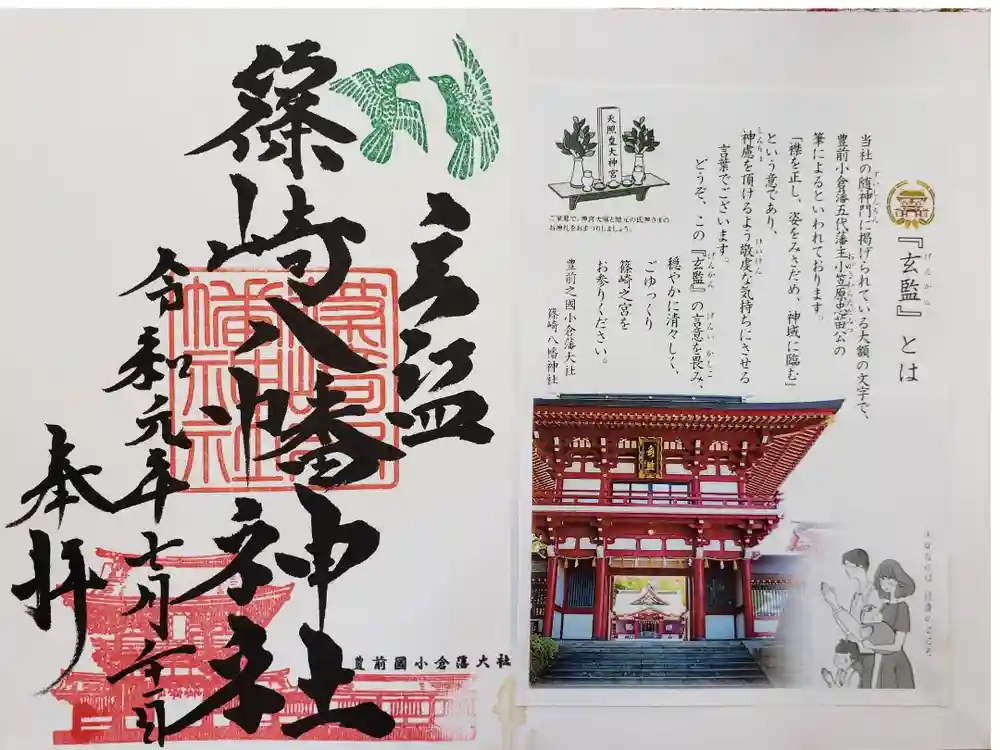 玄監
篠崎八幡神社
令和元年
奉拝
豊前國小倉藩大社
『玄監』とは
げんかん
当社の随神門に掲げられている大額の文字で、
豊前小倉藩五代藩主小笠原忠苗公の
筆によるといわれております。
「襟を正し、姿をみさだめ、神域に臨む」
という意であり、
神慮を頂けるよう敬虔な気持ちにさせる
しんりょ
けいけん
言葉でございます。
どうぞ、この『玄監』の言意を畏み、
げんかん
げんい
かしこ
穏やかに清々しく、
ごゆっくり
篠崎之宮を
お参りください。
豊前之國小倉藩大社
篠崎八幡神社
天照皇大神宮
ご家庭で、神宮大麻と地元の氏神さまの
お神札をおまつりしましょう。
玄監